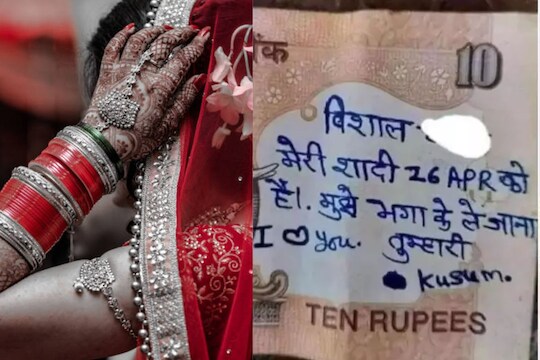 ंक
10
विशाल
मेरी शादी 26 APR को
है।. मुझे भगा के ले जाना
I ♡ you. तुम्हारी
Kusum.
TEN RUPEES